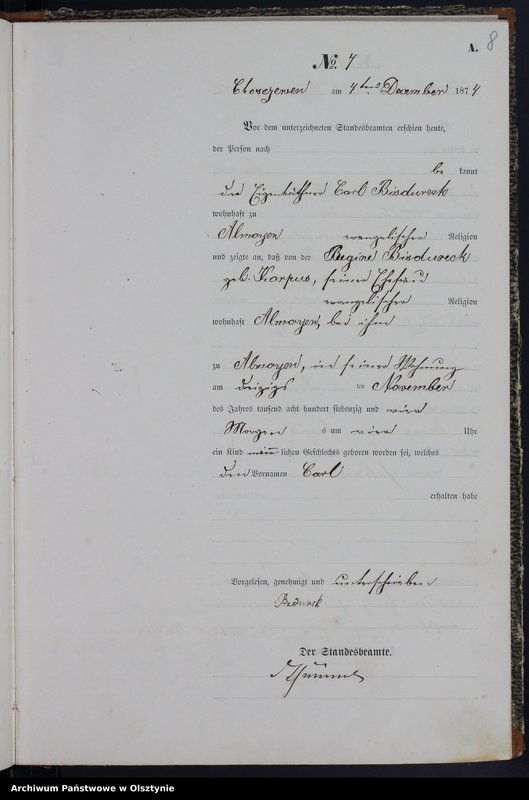 A. 8
No. 7
Chorczewen am 4ten December 1874
Vor dem unterzeichneten Standesbeamten erschien heute,
der Person nach
be kannt
der Eigenkäthner Carl Bisdureck
wohnhaft zu
Almoyen evangelischer Religion
und zeigte an, daß von der Regine Bisdureck
geb. Karpus, seiner Ehefrau
evangelischer Religion
wohnhaft Almoyen, bei ihm
zu Almoyen, in seiner Wohnung
am November
des Jahres tausend acht hundert siebenzig und vier
Morgens um vier Uhr
ein Kind männlichen Geschlechts geboren worden sei, welches
den Vornamen Carl
erhalten habe
Vorgelesen, genehmigt und unterschrieben
Der Standesbeamte.
Archiwum Państwowe w Olsztynie